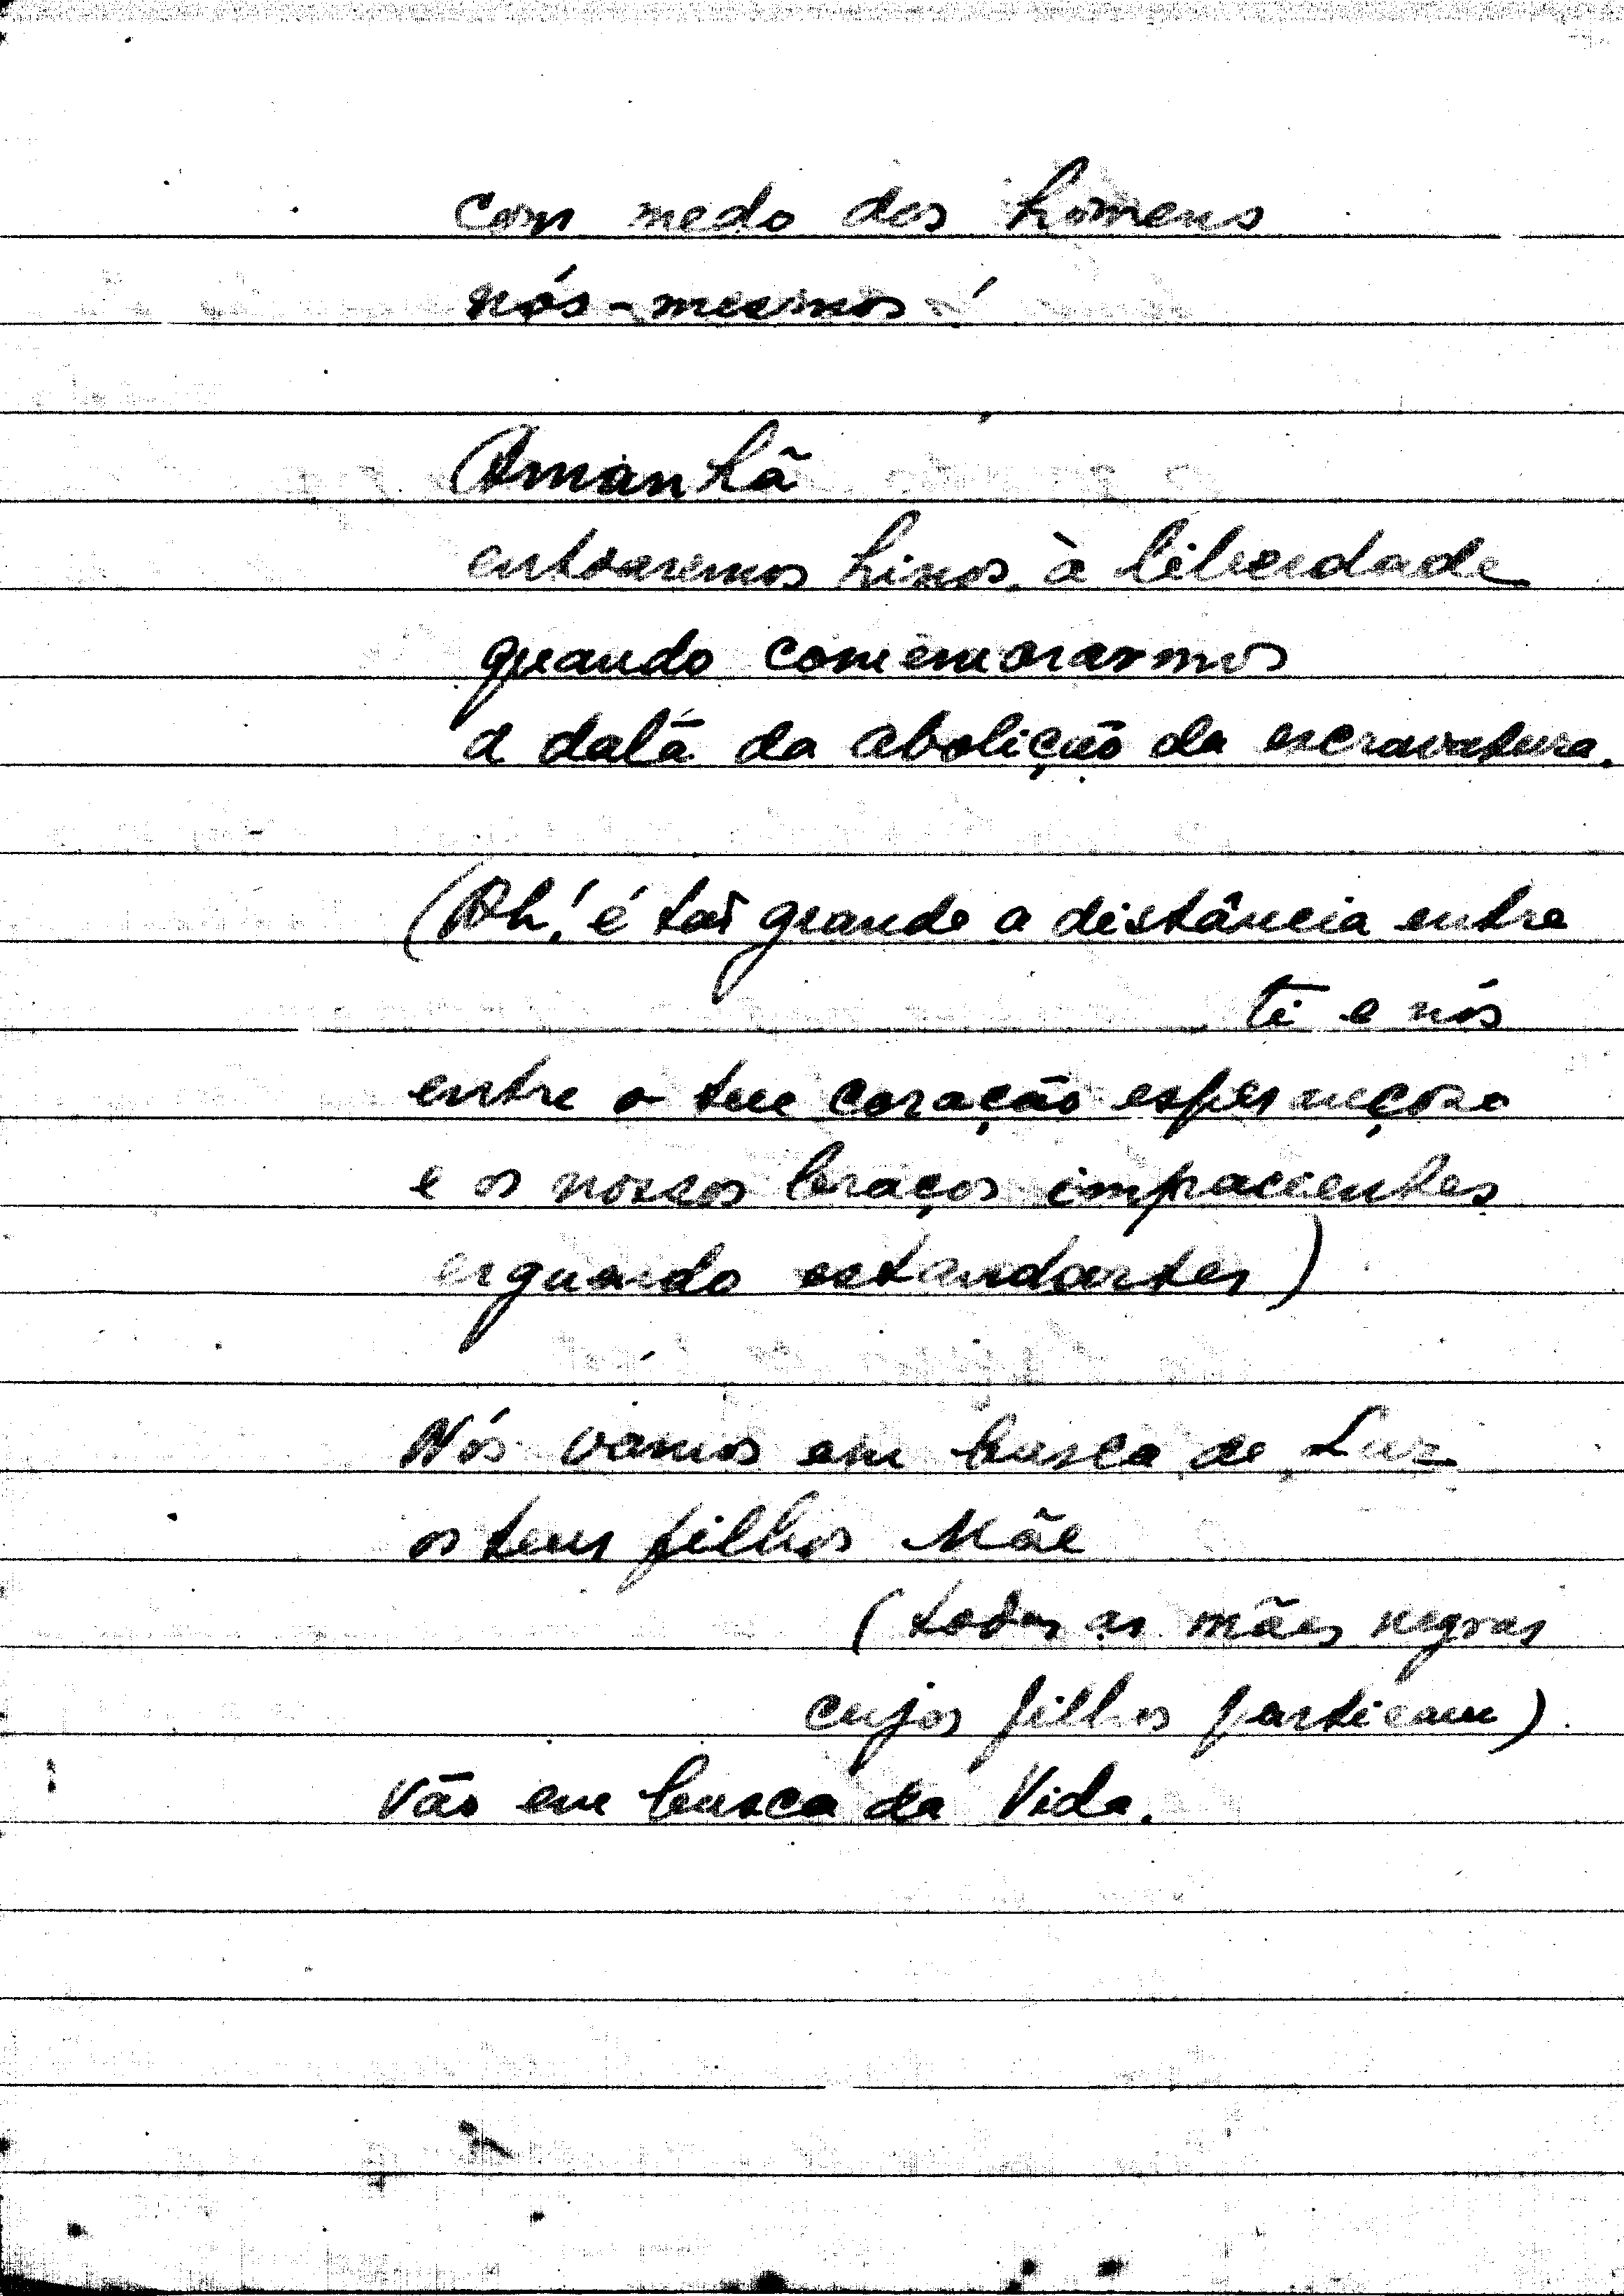 com medo dos homens
nós-mesmos!
Amanhã
entoaremos hinos à liberdade
quando comemorarmos
a data da abolição da escravatura.
(Ah! é tão grande a distância entre
ti e nós
entre o teu coração esperançoso
e os nossos braços impacientes
erguendo estandartes)
Nós vamos em busca de Luz
os teus filhos Mãe
(todas as mães negras
cujos filhos partiram)
Vão em busca da Vida.